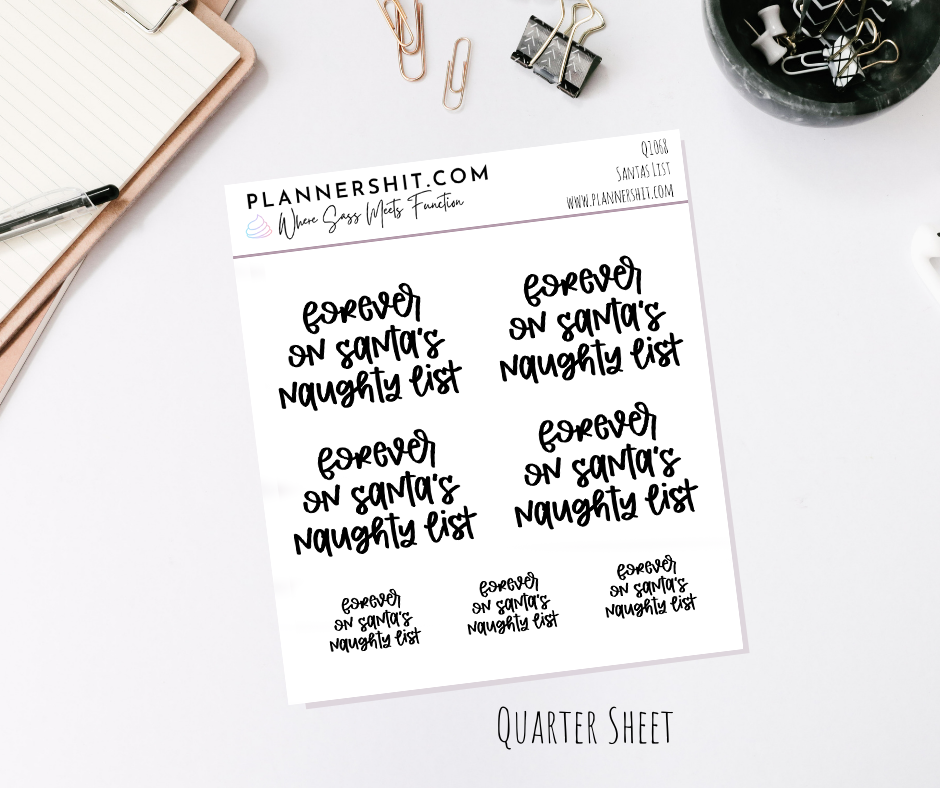 PLANNERSHIT.COM
Where Sass Meets Function
Q1068
Santas List
www.plannershit.com
forever
on santa's
naughty list
forever
on santa's
naughty list
forever
on santa's
naughty list
forever
on santa's
naughty list
forever
on santa's
naughty list
forever
on santa's
naughty list
forever
on santa's
naughty list
Quarter Sheet